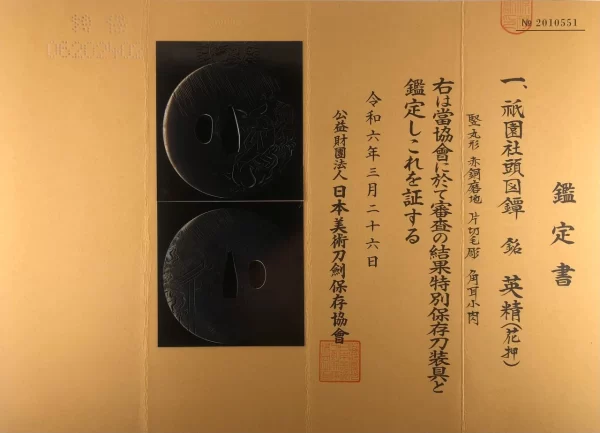 № 2010551
鑑定書
一、祇園社頭図鐔 銘 英精(花押)
竪丸形 赤銅磨地 片切毛彫 角耳小肉
右は當協會に於て審査の結果特別保存刀装具と
鑑定しこれを証する
令和六年三月二十六日
公益財團法人 日本美術刀劍保存協會